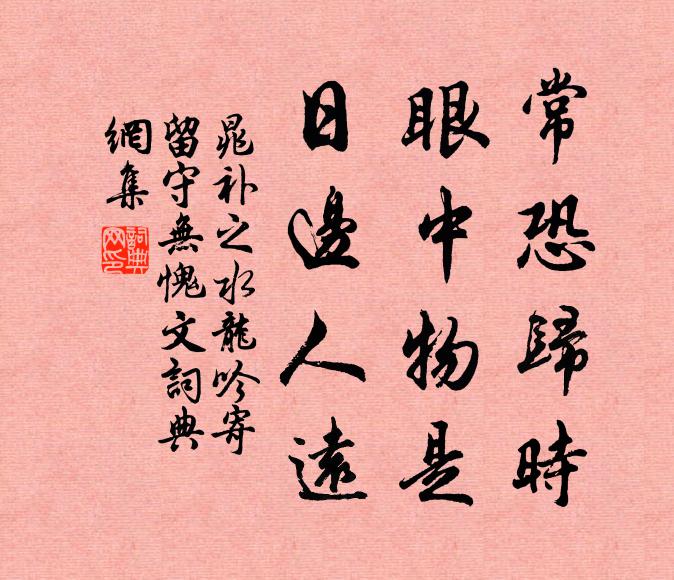 常恐歸時
眼中物是
日邊人遠
晁补之水龍吟寄
留守無愧文詞典
網集
詞典网印